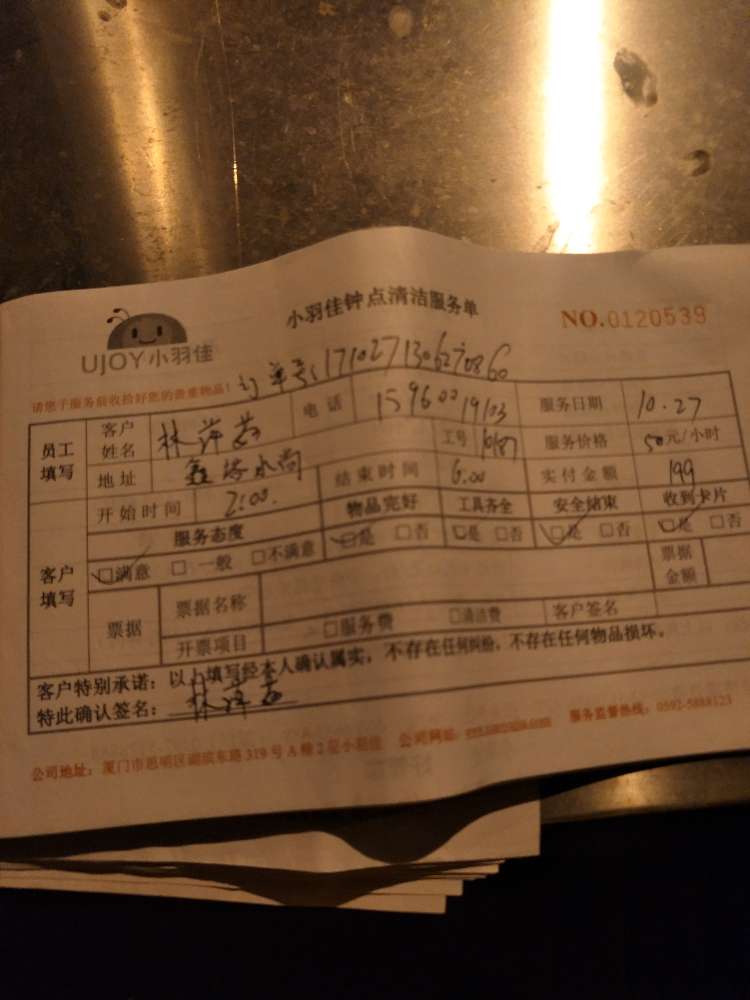 小羽佳钟点清洁服务单
NO.0120539
UJOY小羽佳
请您于服务前收拾好您的贵重物品！
订单号:1710271306270860
员工填写 客户姓名 林萍 电话 15960019103 服务日期 10.27
地址 水尚 工号 服务价格 50元/小时
开始时间 2:00. 结束时间 6:00 实付金额 199
客户填写 服务态度 物品完好 工具齐全 安全结束 收到卡片
□满意 □一般 □不满意 □是 □否 □是 □否 □是 □否 □是 □否
票据 票据名称 票据金额
开票项目 □服务费 □清洁费 客户签名
客户特别承诺：以上填写经本人确认属实，不存在任何纠纷，不存在任何物品损坏。
特此确认签名： 林萍
公司地址：厦门市思明区湖滨东路319号A幢2层小羽佳 公司网站: 服务监督热线：0592-5888123